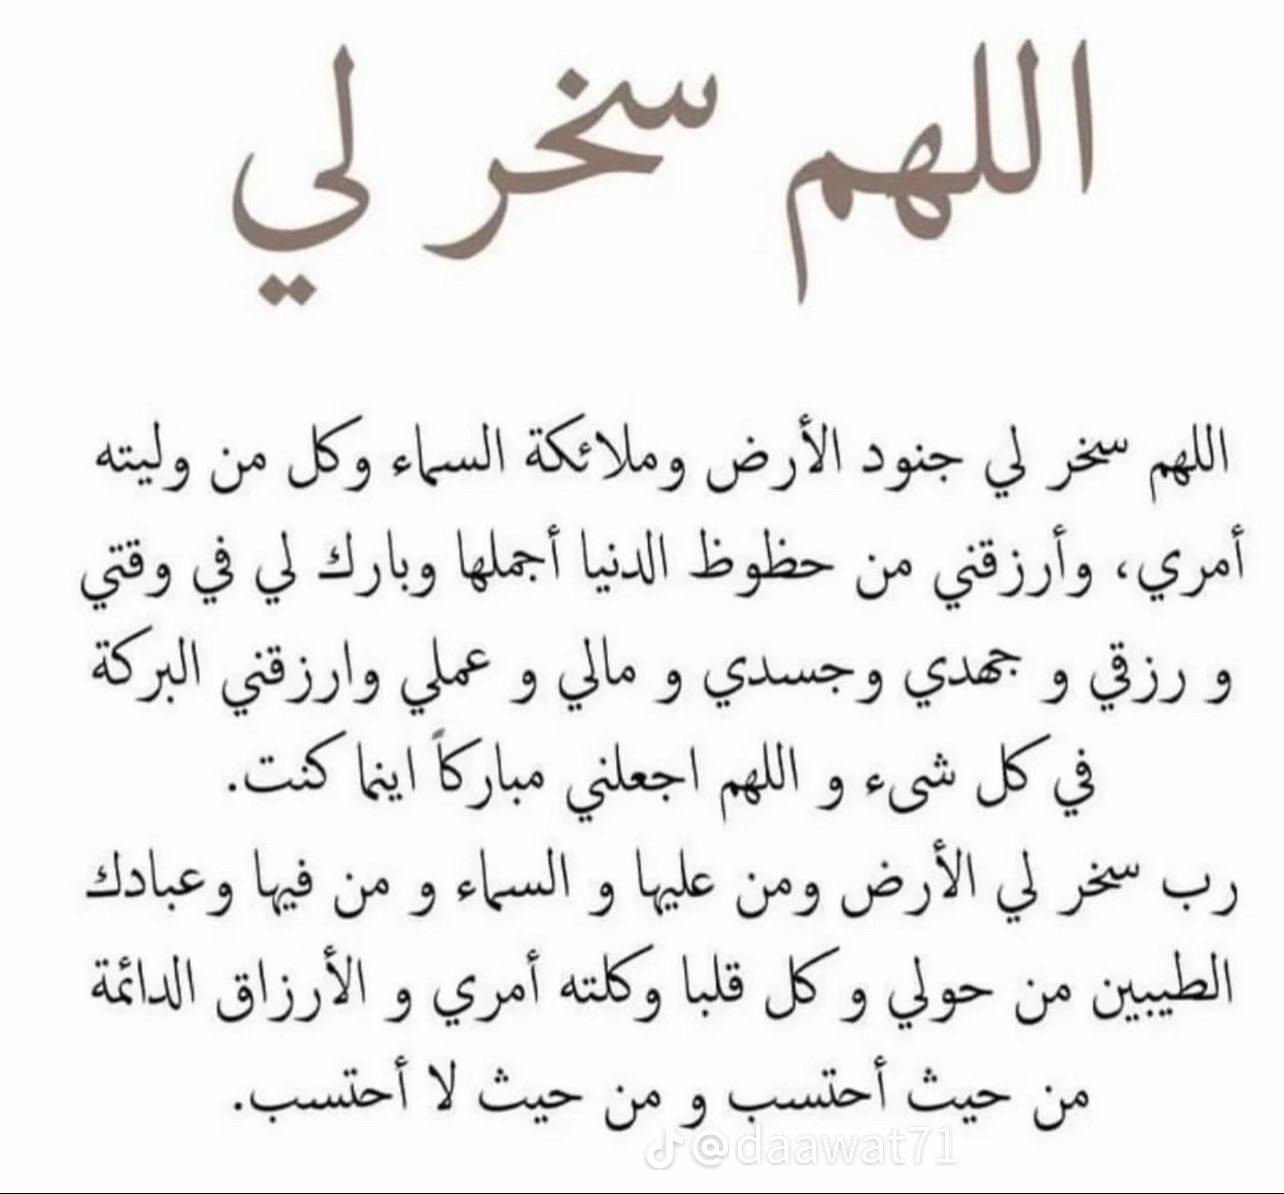 اللهم سخر لي
اللهم سخر لي جنود الأرض وملائكة السماء وكل من وليته
أمري، وأرزقني من حظوظ الدنيا أجملها وبارك لي في وقتي
و رزقي و جهدي وجسدي و مالي و عملي وارزقني البركة
في كل شىء و اللهم اجعلني مباركاً اينما كنت.
رب سخر لي الأرض ومن عليها و السماء و من فيها وعبادك
الطيبين من حولي و كل قلبا وكلته أمري و الأرزاق الدائمة
من حيث أحتسب و من حيث لا أحتسب.
@daawat71